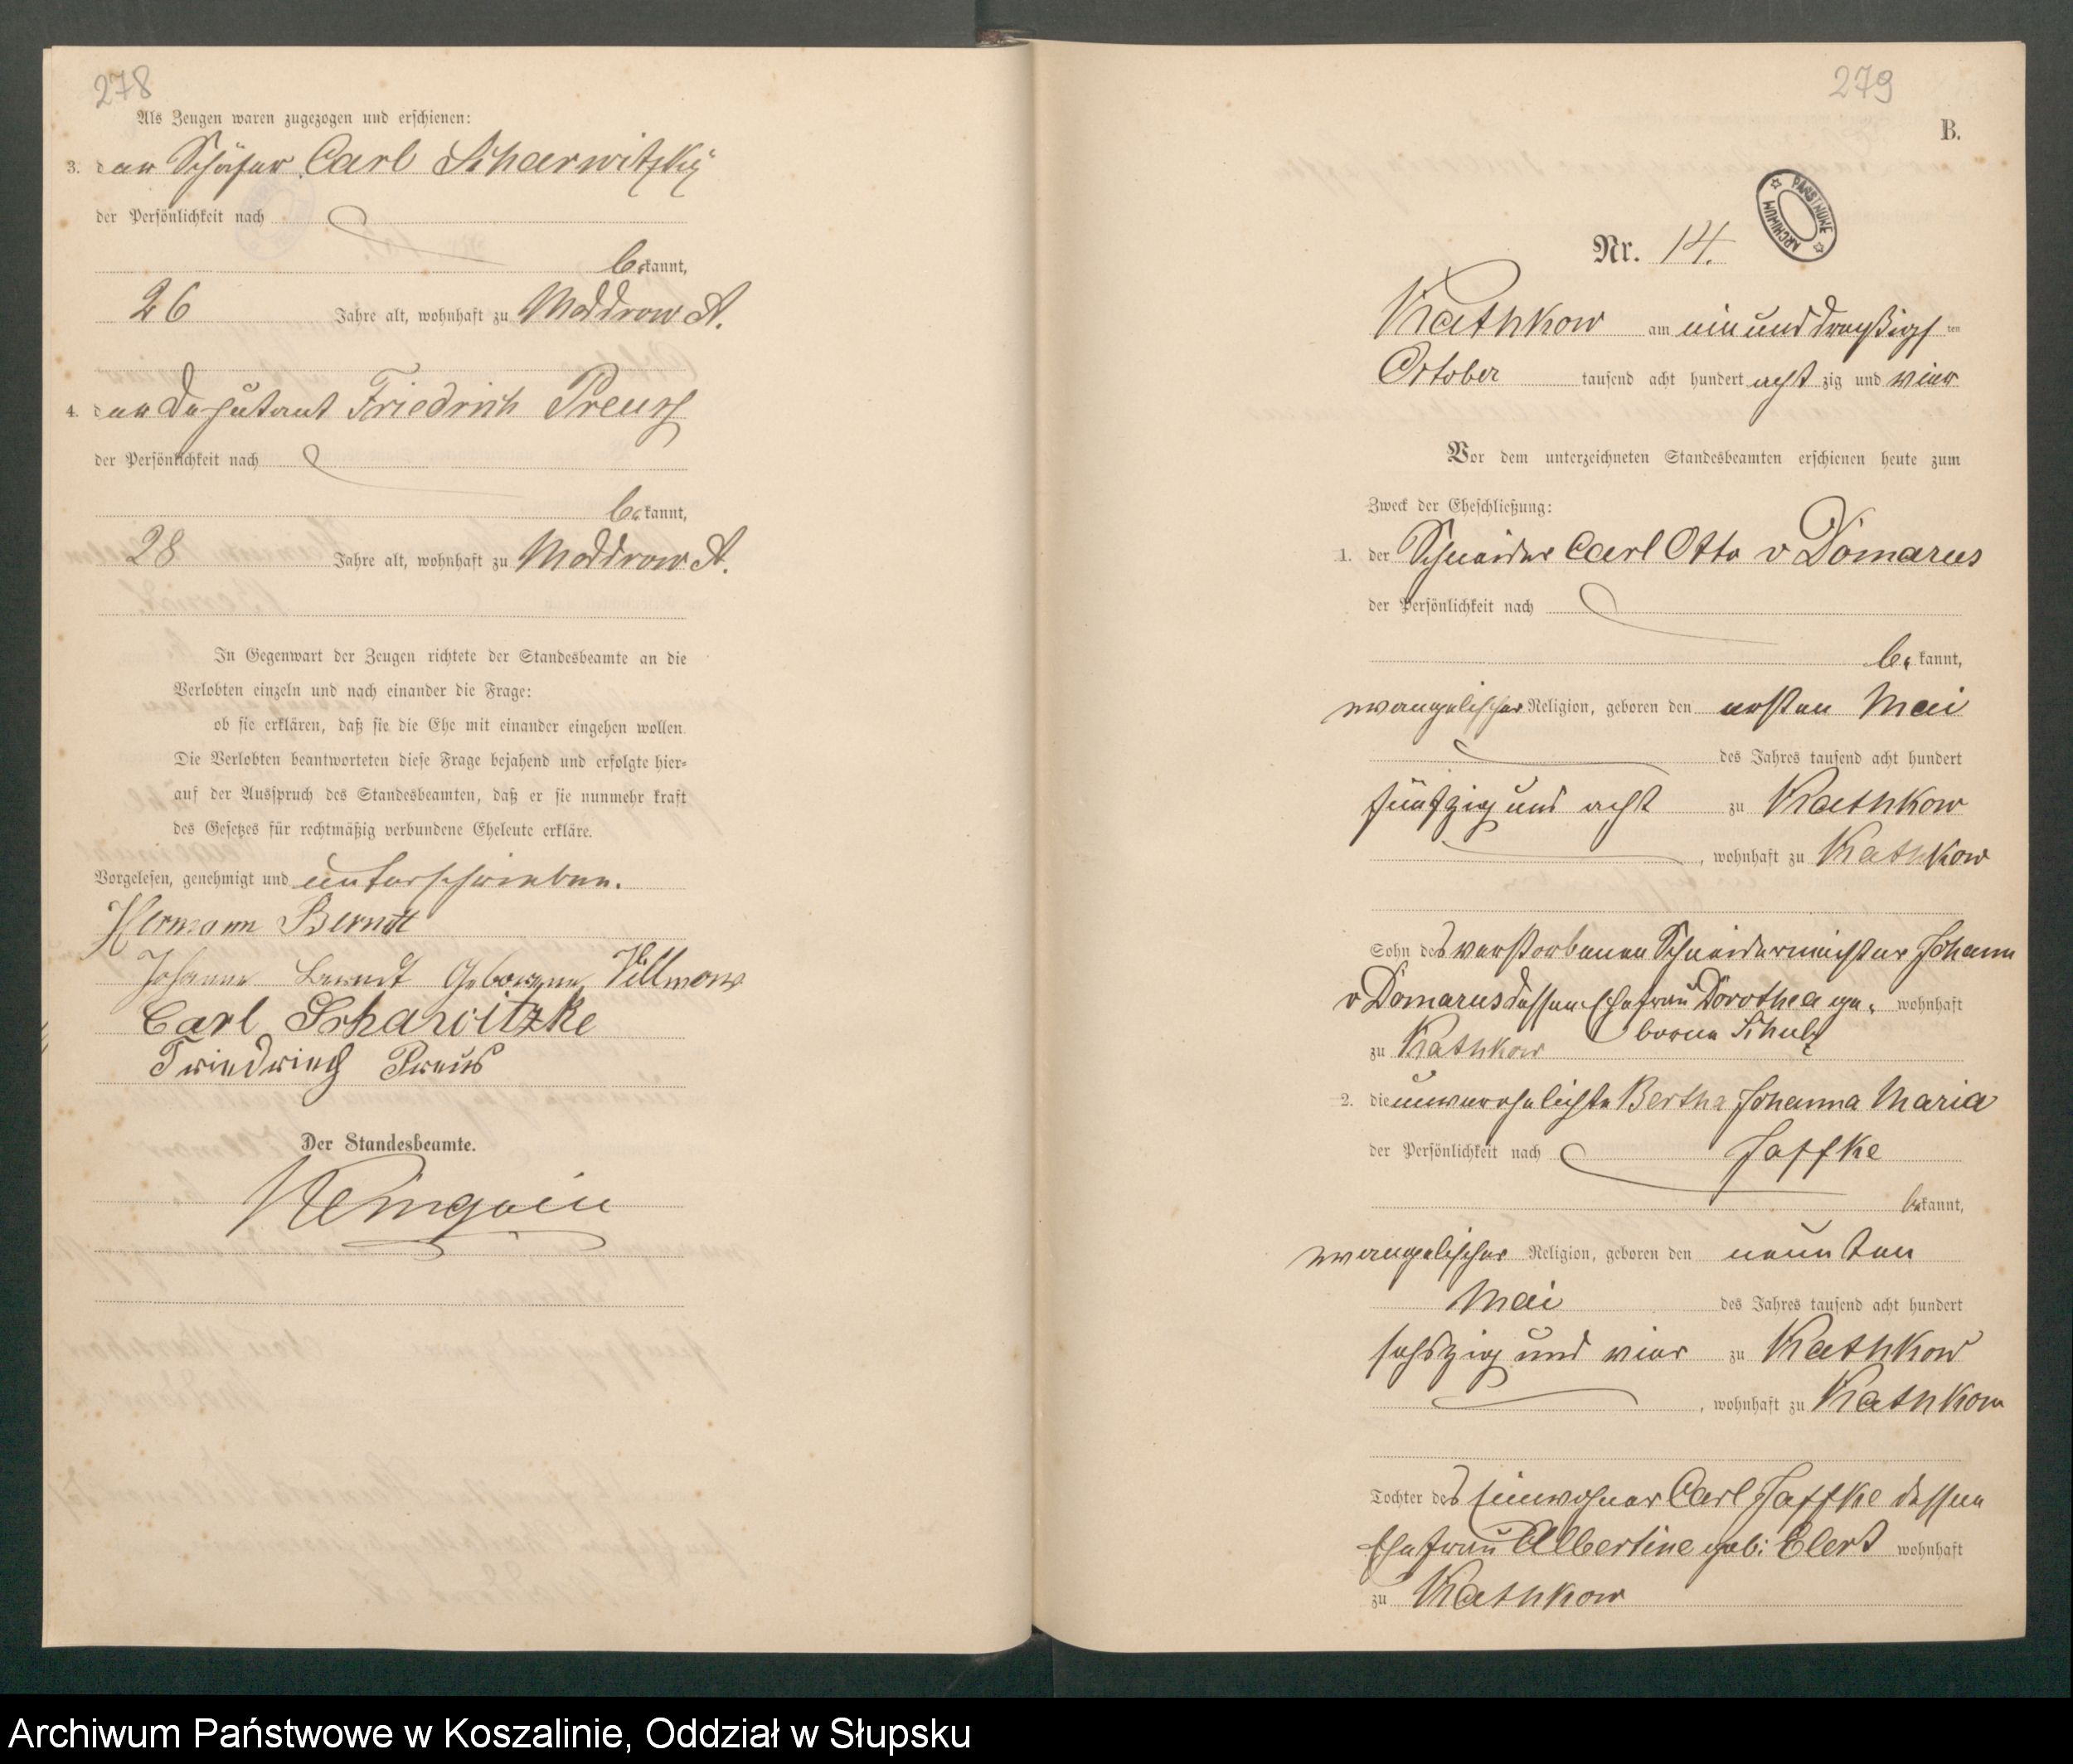 278
Als Zeugen waren zugezogen und erschienen:
3. der Schäfer Carl Scharwitzky
der Persönlichkeit nach
bekannt,
26 Jahre alt, wohnhaft zu Moddrow A.
4. der Deputant Friedrich Preuss
der Persönlichkeit nach
bekannt,
28 Jahre alt, wohnhaft zu Moddrow A.
In Gegenwart der Zeugen richtete der Standesbeamte an die
Verlobten einzeln und nach einander die Frage:
ob sie erklären, daß sie die Ehe mit einander eingehen wollen.
Die Verlobten beantworteten diese Frage bejahend und erfolgte hier-
auf der Ausspruch des Standesbeamten, daß er sie nunmehr kraft
des Gesetzes für rechtmäßig verbundene Eheleute erkläre.
Vorgelesen, genehmigt und unterschrieben.
Hermann Berndt
Johanne Berndt Geborene Villmow
Carl Scharwitzke
Friedrich Preuß
Der Standesbeamte.
279
B.
ARCHIWUM PAŃSTWOWE
Nr. 14.
Kathkow am ein und dreyßigsten
October tausend acht hundert achtzig und vier
Vor dem unterzeichneten Standesbeamten erschienen heute zum
Zweck der Eheschließung:
1. der Schneider Carl Otto v Domarus
der Persönlichkeit nach
bekannt,
evangelischer Religion, geboren den ersten Mai
des Jahres tausend acht hundert
fünfzig und acht zu Kathkow
, wohnhaft zu Kathkow
Sohn des verstorbenen Schneidermeister Johann
v Domarus dessen Ehefrau Dorothea ge- wohnhaft
zu Kathkow borne Schulz
2. die unverehelichte Bertha Johanna Maria
der Persönlichkeit nach Jaffke
bekannt,
evangelischer Religion, geboren den neunten
Mai des Jahres tausend acht hundert
sechszig und vier zu Kathkow
, wohnhaft zu Kathkow
Tochter des Einwohner Carl Jaffke dessen
Ehefrau Albertine geb: Elert wohnhaft
zu Kathkow
Archiwum Państwowe w Koszalinie, Oddział w Słupsku